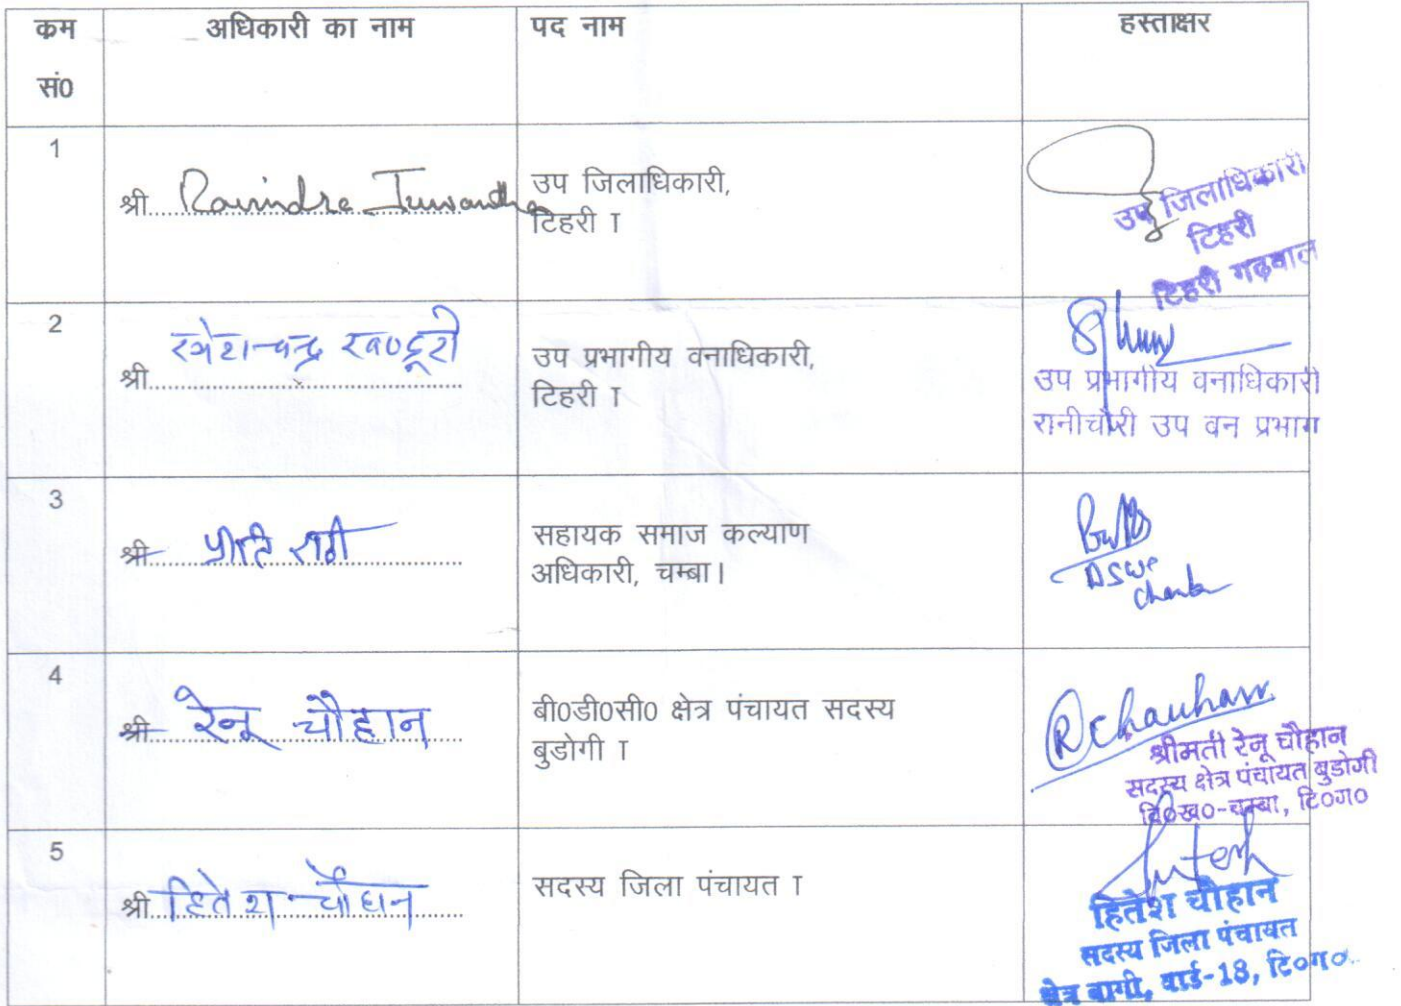 क्रम सं0 अधिकारी का नाम पद नाम हस्ताक्षर
1
श्री Ravindra Juwantha
उप जिलाधिकारी,
टिहरी ।
उप जिलाधिकारी
टिहरी
टिहरी गढ़वाल
2
श्री रमेश चन्द्र खण्डूरी
उप प्रभागीय वनाधिकारी,
टिहरी ।
उप प्रभागीय वनाधिकारी
रानीचौरी उप वन प्रभाग
3
श्री प्रीति राठी
सहायक समाज कल्याण
अधिकारी, चम्बा।
ASWO
Chamba
4
श्री रेनू चौहान
बी0डी0सी0 क्षेत्र पंचायत सदस्य
बुडोगी ।
RChauhan
श्रीमती रेनू चौहान
सदस्य क्षेत्र पंचायत बुडोगी
वि०ख०-चम्बा, टि०ग०
5
श्री हितेश चौहान
सदस्य जिला पंचायत ।
Hitesh
हितेश चौहान
सदस्य जिला पंचायत
क्षेत्र बागी, वार्ड-18, टि०ग०